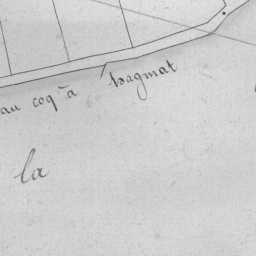 au coq à hagmat
la